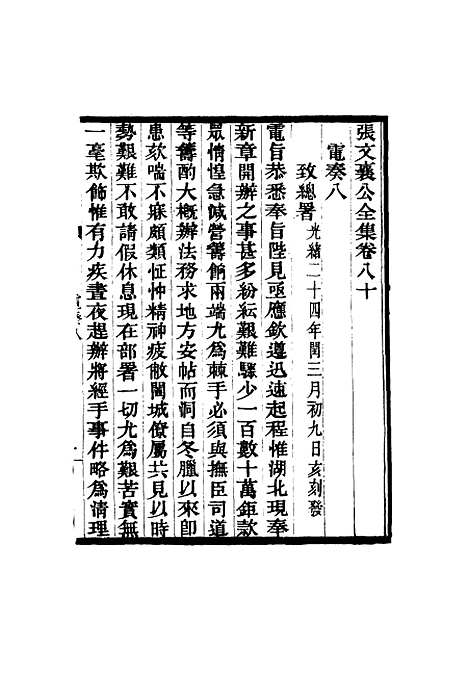 張文襄公全集卷八十
電奏八
致總署光緒二十四年閏三月初九日亥刻發
電旨恭悉奉旨陛見亟應欽遵迅速起程惟湖北現奉
新章開辦之事甚多紛紜艱難驟少一百數十萬鉅款
眾情惶急餉營籌餉兩端尤為棘手必須與撫臣司道
等籌酌大概辦法務求地方安帖而洞自冬臘以來卽
患欬喘不寐頗類怔忡精神疲敝闔城僚屬共見以時
勢艱難不敢請假休息現在部署一切尤為艱苦實無
一毫欺飾惟有力疾晝夜趕辦將經手事件略為清理